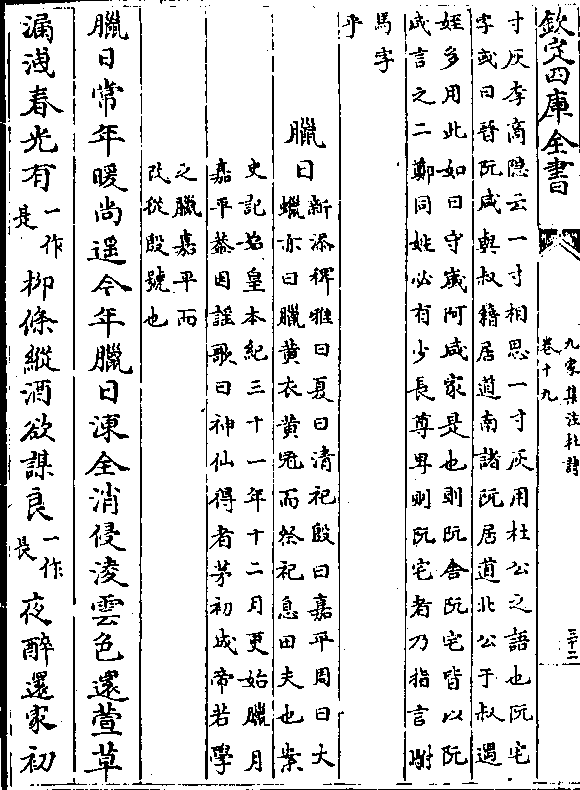 欽定四庫全書
九家集注杜詩
卷十九
三十二
寸灰李商隠云一寸相思一寸灰用杜公之語也阮宅
字或曰晉阮咸與叔籍居道南諸阮居道北公于叔遇
姪多用此如曰守嵗阿咸家是也則阮舍阮宅皆以阮
咸言之二鄭同姓必有少長尊卑則阮宅者乃指言駙
馬字
乎
臘日
新添稗雅曰夏曰清祀殷曰嘉平周曰大
蜡亦曰臘黄衣黄冠而祭祀息田夫也案
史記始皇本紀三十一年十二月更始臘月
嘉平葢因謡歌曰神仙得者茅初成帝若學
之臘嘉平而
改從殷號也
臘日常年暖尚遥今年臘日凍全消侵淩雲色還萱草
漏洩春光有一作是柳條縱酒欲謀良一作長夜醉還家初